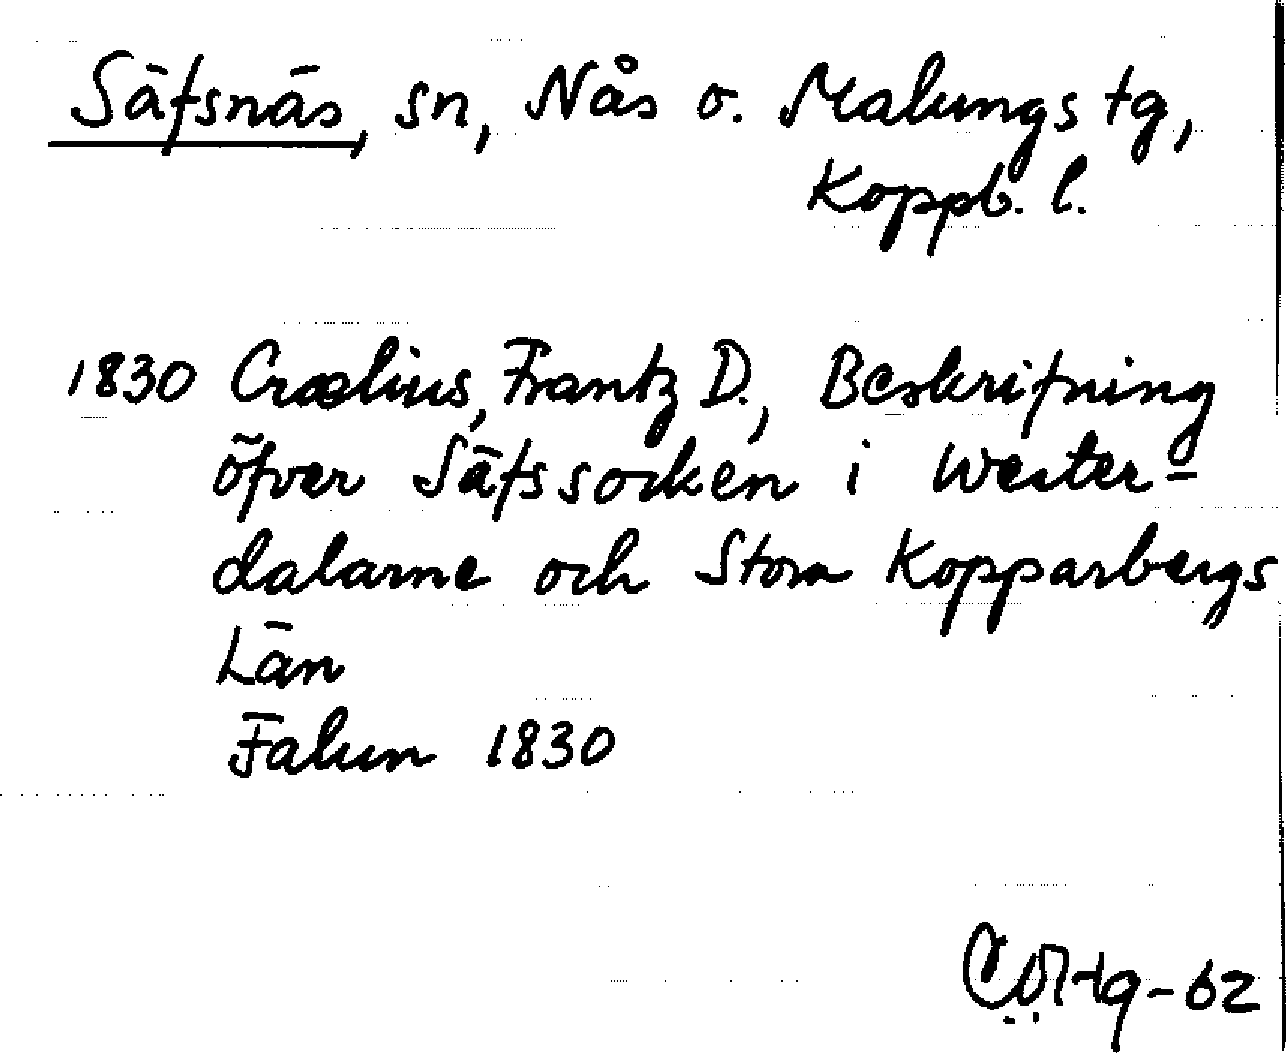 Säfsnäs, sn, Nås o. Malungs tg,
Koppb. l.
1830 Cræelius, Frantz D., Beskrifning
öfver Säfssocken i Wester-
dalarne och Stora Kopparbergs
Län
Falun 1830
-62